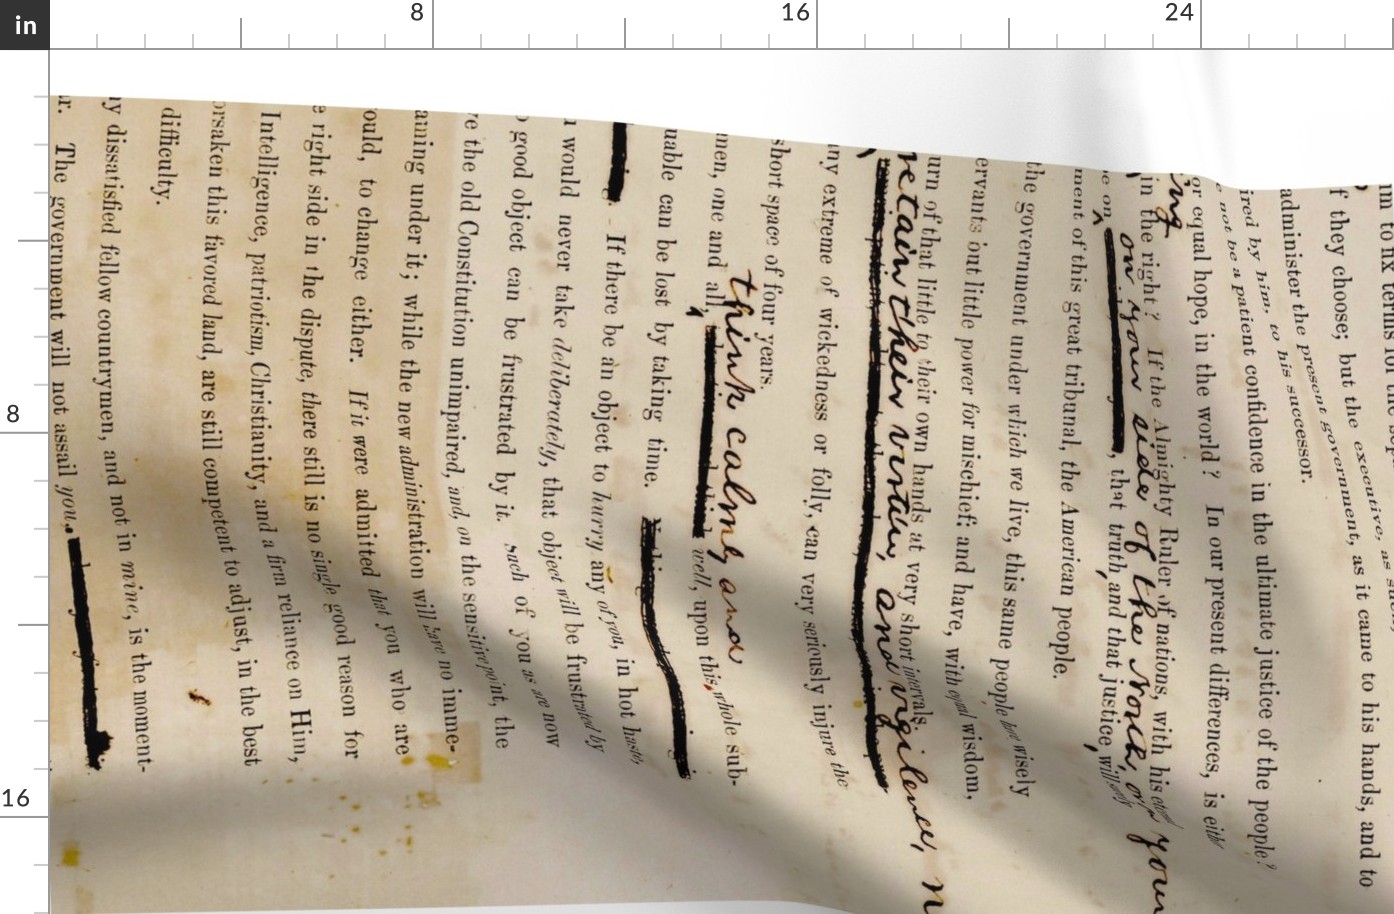 in
8
16
24
8
16
m to fix terms for the
f they choose; but the executive, as such,
administer the present government, as it came to his hands, and to
ired by him, to his successor.
e not be a patient confidence in the ultimate justice of the people?
or equal hope, in the world? In our present differences, is either
ing
in the right? If the Almighty Ruler of nations, with his eternal
on your side of the North, or your
e on , that truth, and that justice, will surely
ment of this great tribunal, the American people.
the government under which we live, this same people have wisely
ervants but little power for mischief; and have, with equal wisdom,
urn of that little to their own hands at very short intervals.
retain their virtue, and vigilence, n
ny extreme of wickedness or folly, can very seriously injure the
short space of four years.
think calmly and
men, one and all, well, upon this whole sub-
uable can be lost by taking time.
If there be an object to hurry any of you, in hot haste,
u would never take deliberately, that object will be frustrated by
o good object can be frustrated by it. such of you as are now
e the old Constitution unimpaired, and, on the sensitive point, the
aming under it; while the new administration will have no imme-
ould, to change either. If it were admitted that you who are
e right side in the dispute, there still is no single good reason for
Intelligence, patriotism, Christianity, and a firm reliance on Him,
orsaken this favored land, are still competent to adjust, in the best
difficulty.
ny dissatisfied fellow countrymen, and not in mine, is the moment-
r. The government will not assail you.